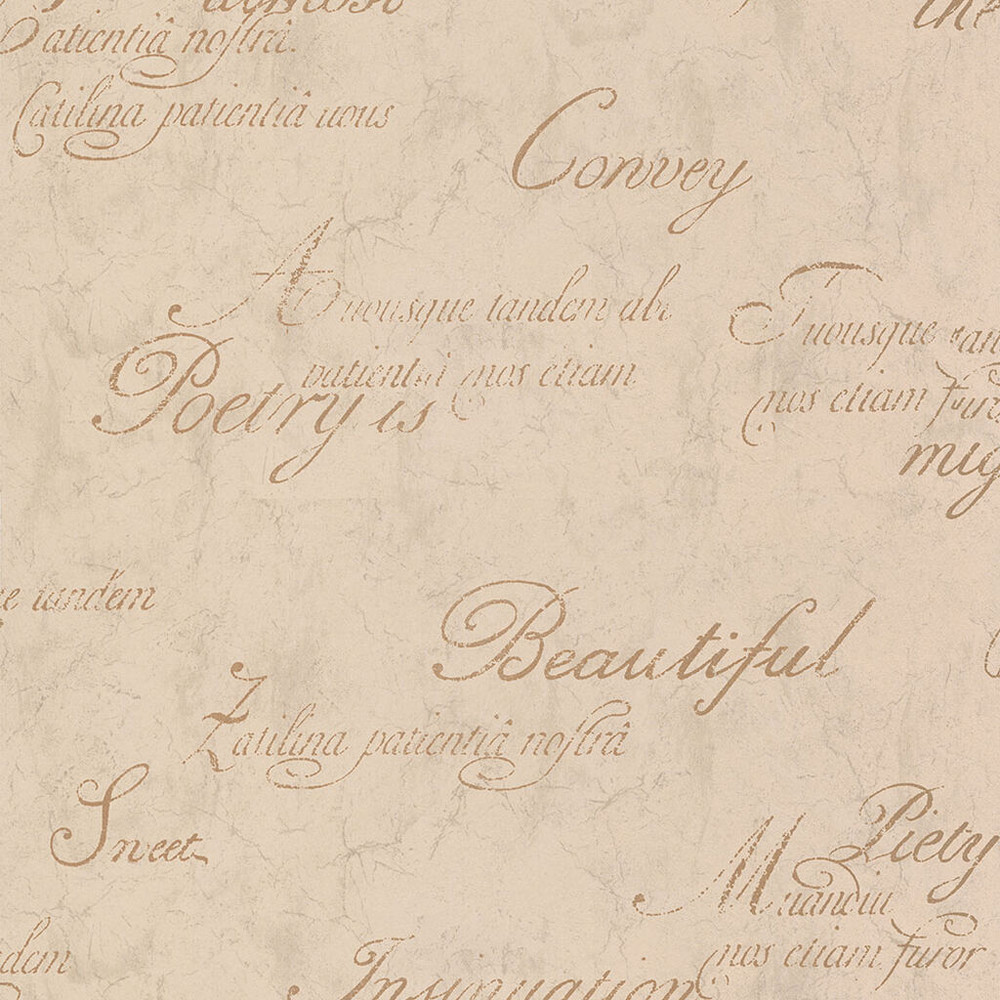 the
Patientiâ noſtrâ.
Catilina patientiâ uous
Convey
uousque tandem ab
Tuousque tan
patientiâ nos etiam
nos etiam furo
Poetry is
mig
e tandem
Beautiful
Zatilina patientiâ noſtrâ
Sweet
Piety
Muandiu
nos etiam furor
dem
Insinuation